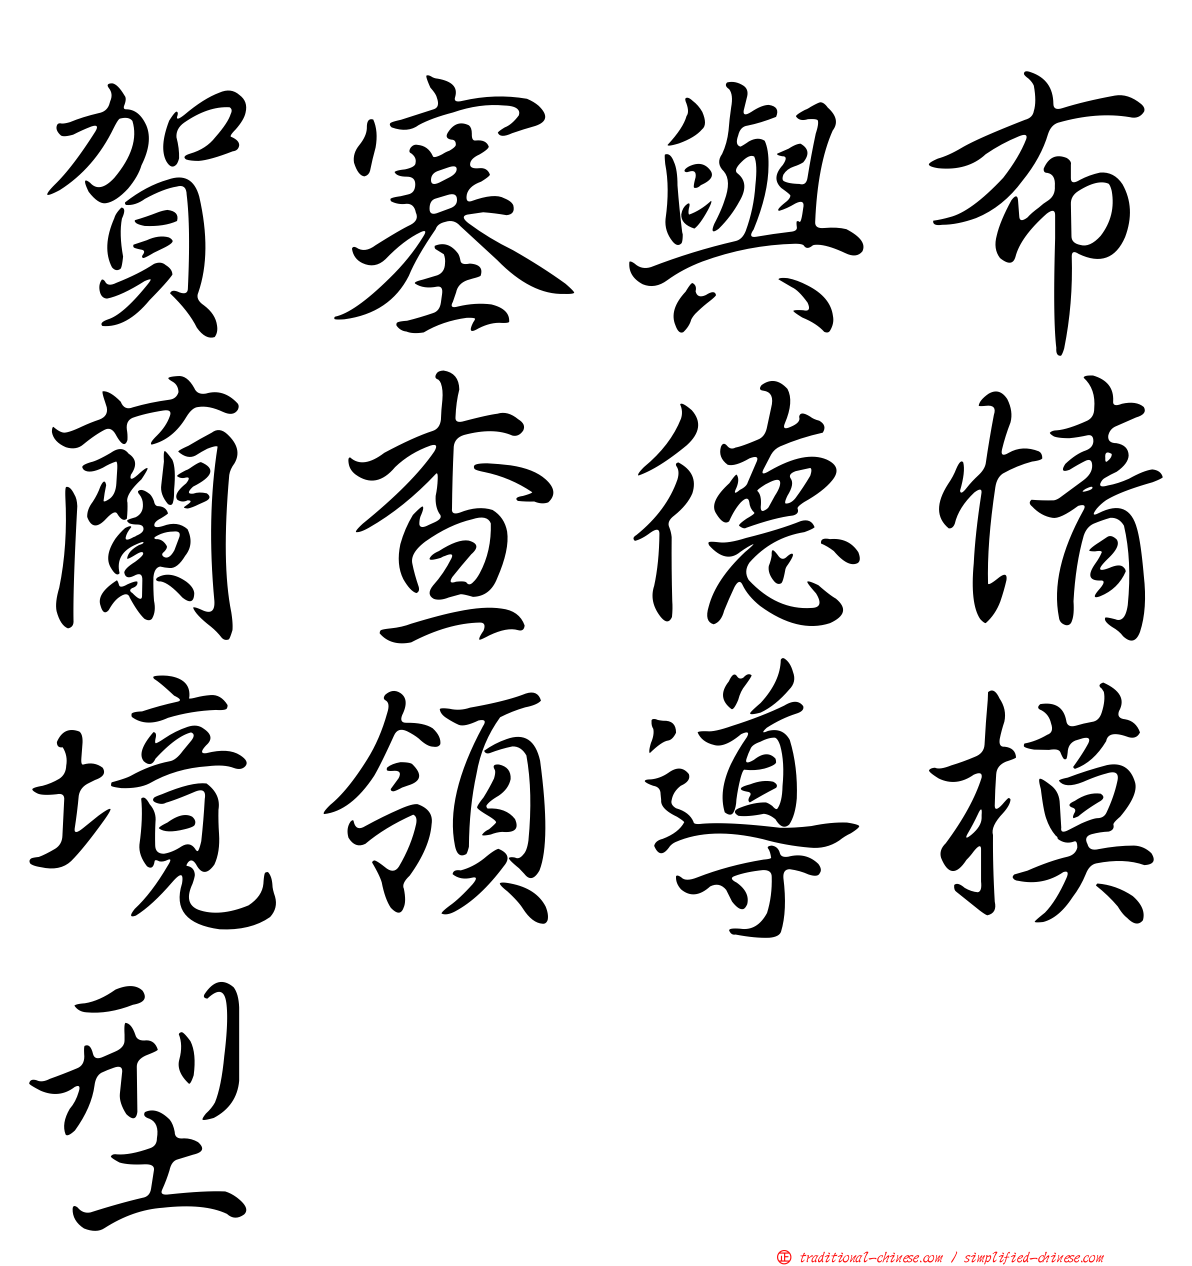 賀塞與布
蘭查德情
境領導模
型
正 traditional-chinese.com / simplified-chinese.com